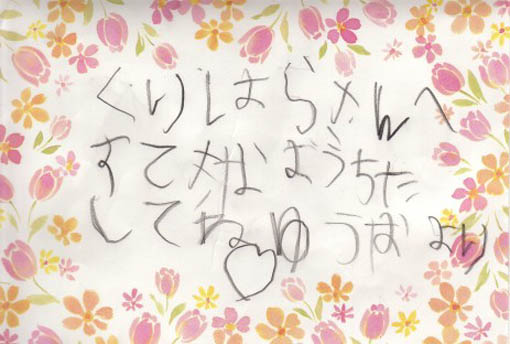 くりはらさんへ
すてきなおうちに
してねゆうなより